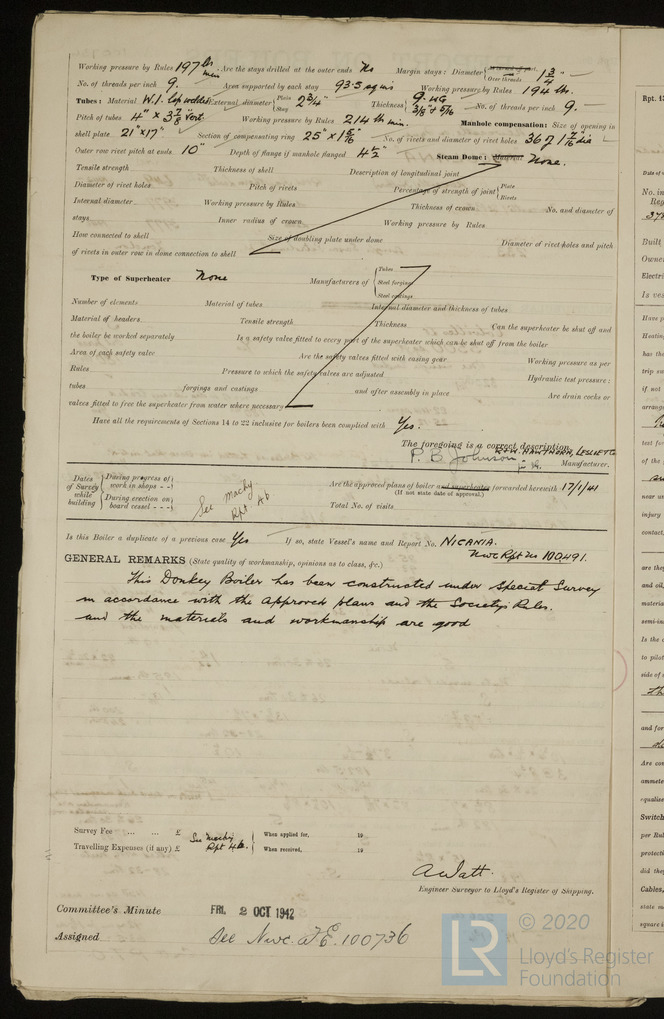 Working pressure by Rules 197 lbs Are the stays drilled at the outer ends No Margin stays: Diameter { Over threads 1 3/4" —
No. of threads per inch 9. Area supported by each stay 93.5 sq ins Working pressure by Rules 194 lb.
Tubes: Material W.I. lap welded External diameter { Plain Stay 2 3/4" Thickness { 9. WG 3/8" & 5/16 No. of threads per inch 9.
Pitch of tubes 4" x 3 7/8" Vert Working pressure by Rules 214 lb Manhole compensation: Size of opening in
shell plate 21" x 17" Section of compensating ring 25" x 1 5/16 No. of rivets and diameter of rivet holes 36 of 1 7/16" dia
Outer row rivet pitch at ends 10" Depth of flange if manhole flanged 4 1/2" Steam Dome: Material None.
Tensile strength Thickness of shell Description of longitudinal joint
Diameter of rivet holes Pitch of rivets Percentage of strength of joint { Plate Rivets
Internal diameter Working pressure by Rules Thickness of crown No. and diameter of
stays Inner radius of crown Working pressure by Rules
How connected to shell Size of doubling plate under dome Diameter of rivet holes and pitch
of rivets in outer row in dome connection to shell
Type of Superheater None Manufacturers of { Tubes Steel forgings Steel castings
Number of elements Material of tubes Internal diameter and thickness of tubes
Material of headers Tensile strength Thickness Can the superheater be shut off and
the boiler be worked separately Is a safety valve fitted to every part of the superheater which can be shut off from the boiler
Area of each safety valve Are the safety valves fitted with easing gear Working pressure as per
Rules Pressure to which the safety valves are adjusted Hydraulic test pressure:
tubes forgings and castings and after assembly in place Are drain cocks or
valves fitted to free the superheater from water where necessary
Have all the requirements of Sections 14 to 22 inclusive for boilers been complied with Yes.
The foregoing is a correct description,
R & W. HAWTHORN, LESLIE & Co
P. B. Johnson Manufacturer.
Dates of Survey while building { During progress of work in shops - - During erection on board vessel - - -
See Machy Rpt 4b
Are the approved plans of boiler and superheater forwarded herewith 17/1/41
(If not state date of approval.)
Total No. of visits
Is this Boiler a duplicate of a previous case Yes If so, state Vessel's name and Report No. NICANIA.
Nwc Rpt No 100,491.
GENERAL REMARKS (State quality of workmanship, opinions as to class, &c.)
This Donkey Boiler has been constructed under Special Survey
in accordance with the approved plans and the Society's Rules.
and the materials and workmanship are good
Survey Fee ... ... £ When applied for, 19
See Machy Rpt 4b.
Travelling Expenses (if any) £ When received, 19
A Watt.
Engineer Surveyor to Lloyd's Register of Shipping.
Committee's Minute FRI. 2 OCT 1942
Assigned See Nwc. F.E. 100736
© 2020
LR
Lloyd's Register
Foundation